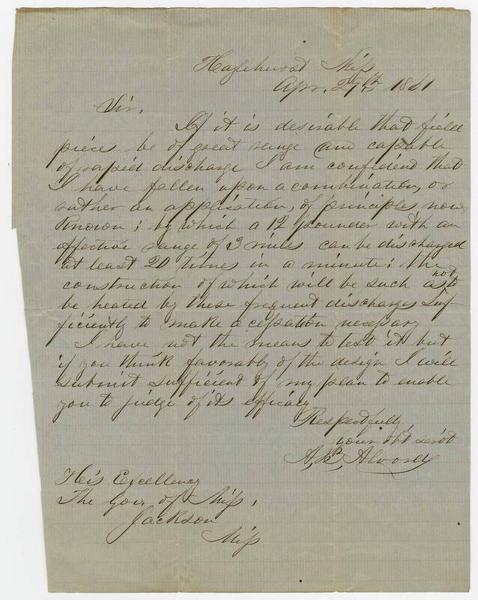 Hazlehurst Miss
Apr. 29th 1861
Sir.
If it is desirable that field
pieces be of great range and capable
of rapid discharge I am confident that
I have fallen upon a combination, or
rather an application, of principles now
known; by which a 12 pounder with an
effective range of 3 miles can be discharged
at least 20 times in a minute; the
construction of which will be such as not to
be heated by these frequent discharges suf-
ficiently to make a cessation necessary
I have not the means to test it but
if you think favorably of the design I will
submit sufficient of my plan to enable
you to judge of its efficacy
Respectfully
your obt servt
A. P. Alvord
His Excellency
The Gov of Miss,
Jackson
Miss